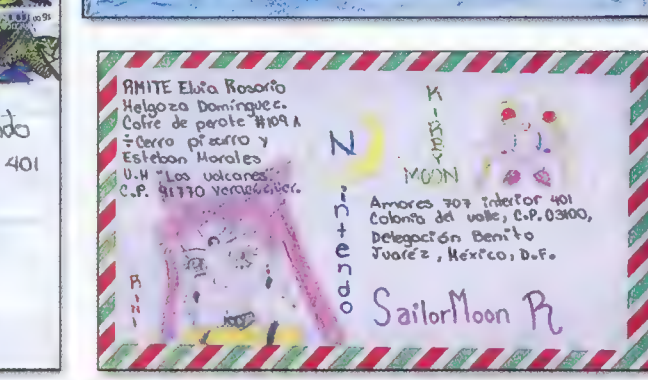 RMITE Elvia Rosario
Melgoza Domínguez.
Cofre de perote #109 A
Cerro pizarro y
Esteban Morales
U.H "Los volcanes".
C.P. 91770 Veracruz, Ver.
N
intendo
KIRBY
MOON
Amores 707 interior 401
Colonia del valle, C.P. 03100,
Delegación Benito
Juaréz, México, D.F.
SailorMoon R
RINI
401